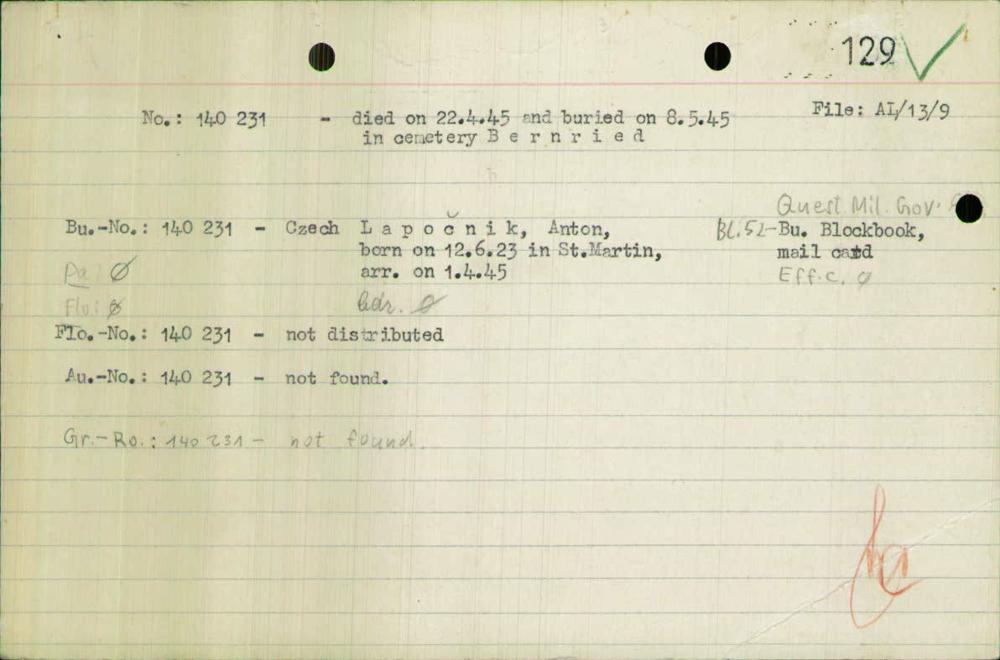 129
No.: 140 231 - died on 22.4.45 and buried on 8.5.45 File: AL/13/9
in cemetery B e r n r i e d
Quest. Mil. Gov.
Bu.-No.: 140 231 - Czech L a p o č n i k, Anton, Bl.52-Bu. Blockbook,
born on 12.6.23 in St.Martin, mail card
Da Ø arr. on 1.4.45 Eff.c. Ø
Flo: Ø Ø
Flo.-No.: 140 231 - not distributed
Au.-No.: 140 231 - not found.
Gr.-Ro.: 140 231 - not found.